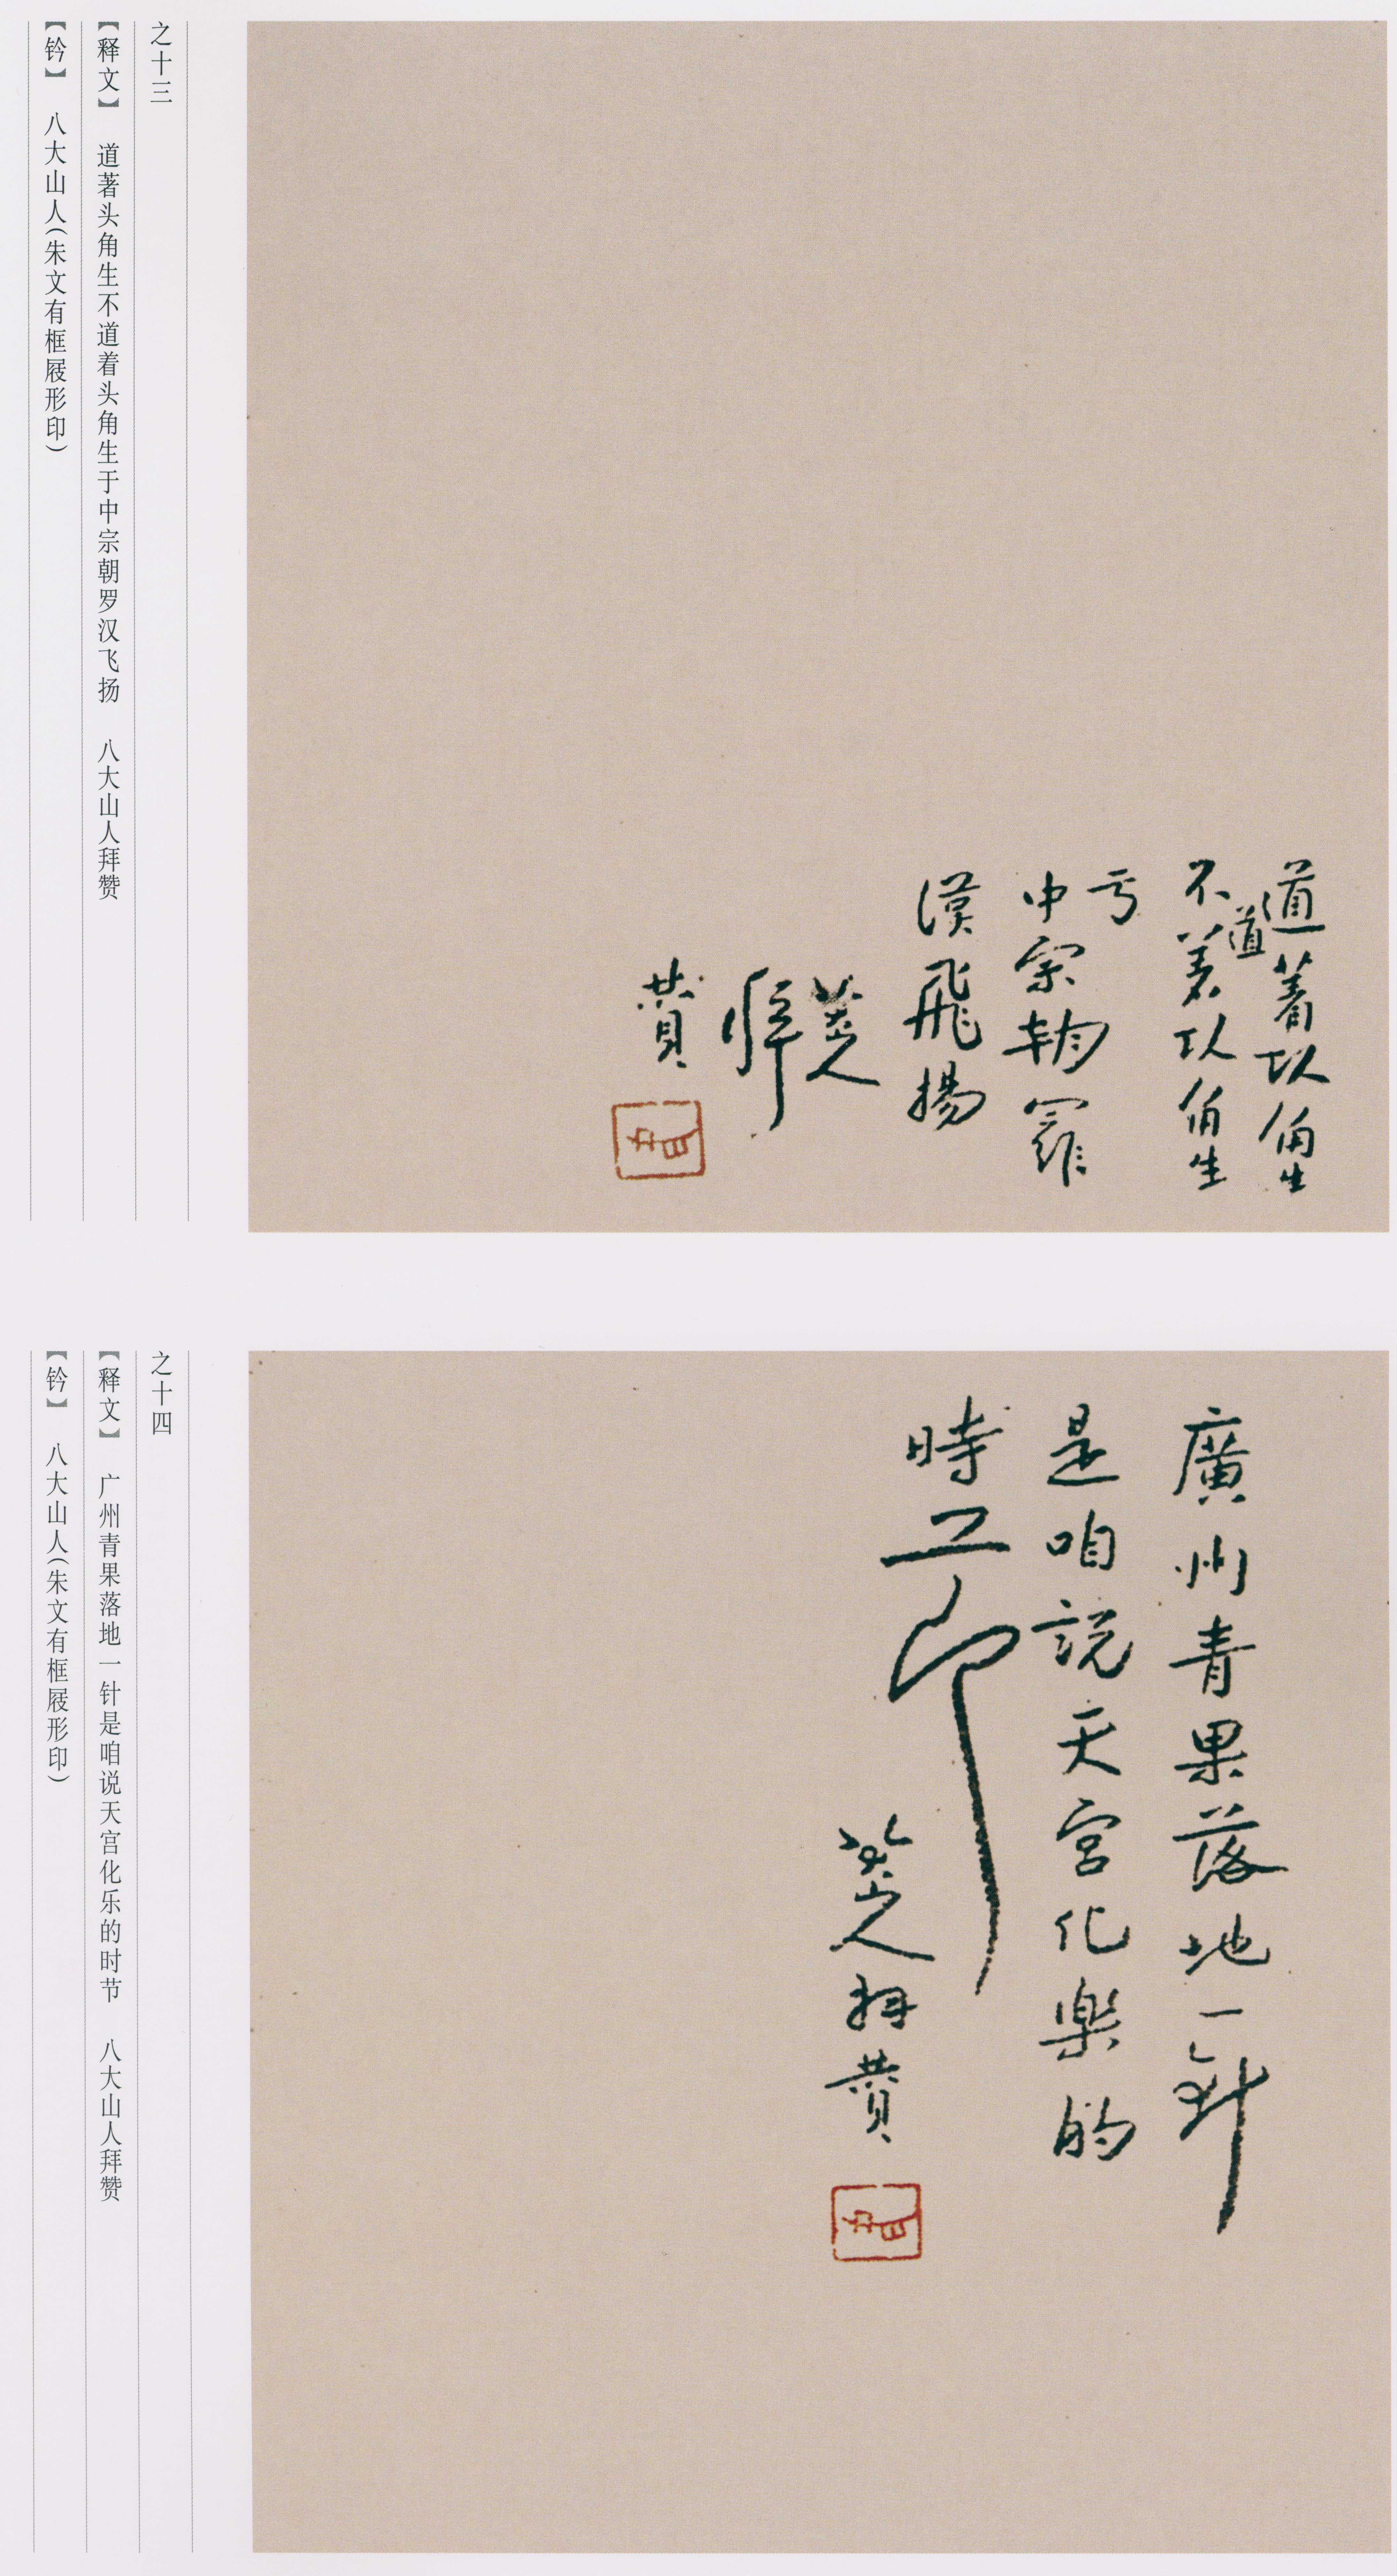 道著头角生
不道着头角生
亏
中宗朝羅
漢飛揚
八大山人
拜
賛
之十三
【释文】 道著头角生不道着头角生于中宗朝罗汉飞扬 八大山人拜赞
【钤】 八大山人(朱文有框屐形印)
廣州青果落地一針
是咱説天宮化樂的
時節
八大山人拜賛
之十四
【释文】 广州青果落地一针是咱说天宫化乐的时节 八大山人拜赞
【钤】 八大山人(朱文有框屐形印)